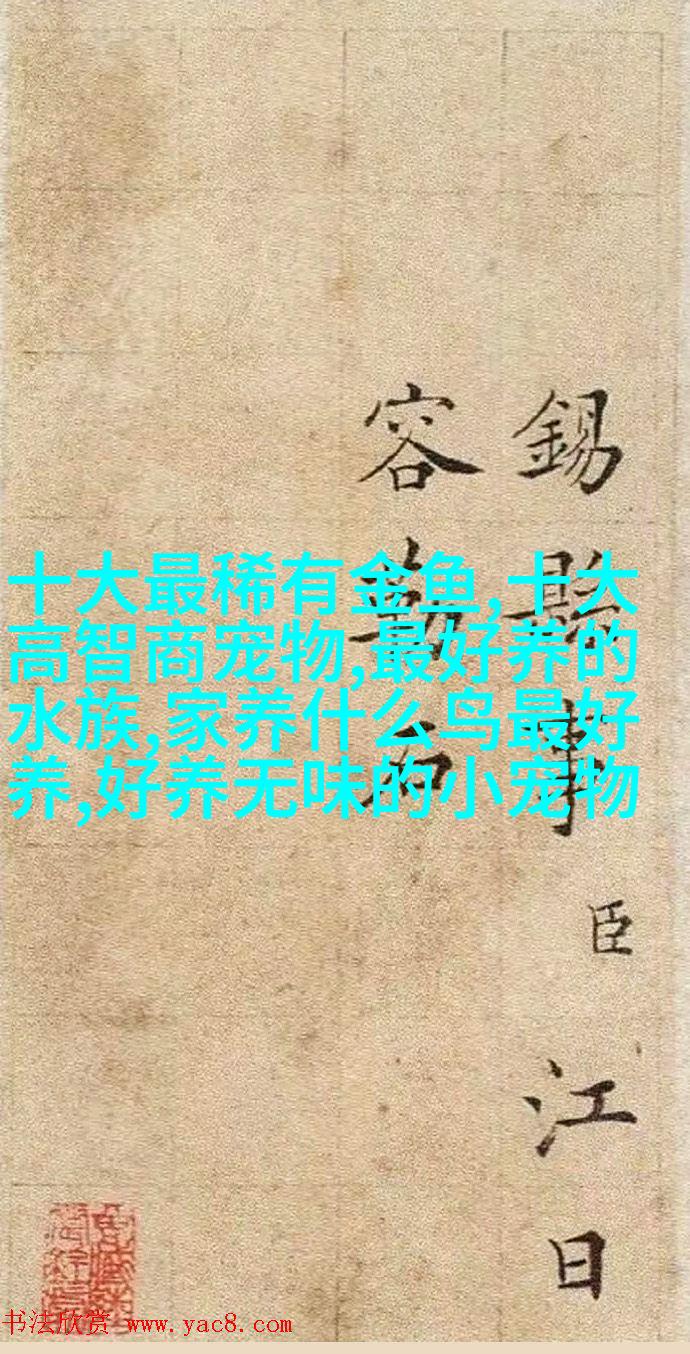 十大最稀有金鱼,十大
高智商宠物,最好养的
水族,家养什么鸟最好
养,好养无味的小宠物
錫縣事臣江日
容勒石
书法欣赏 www.yac8.com